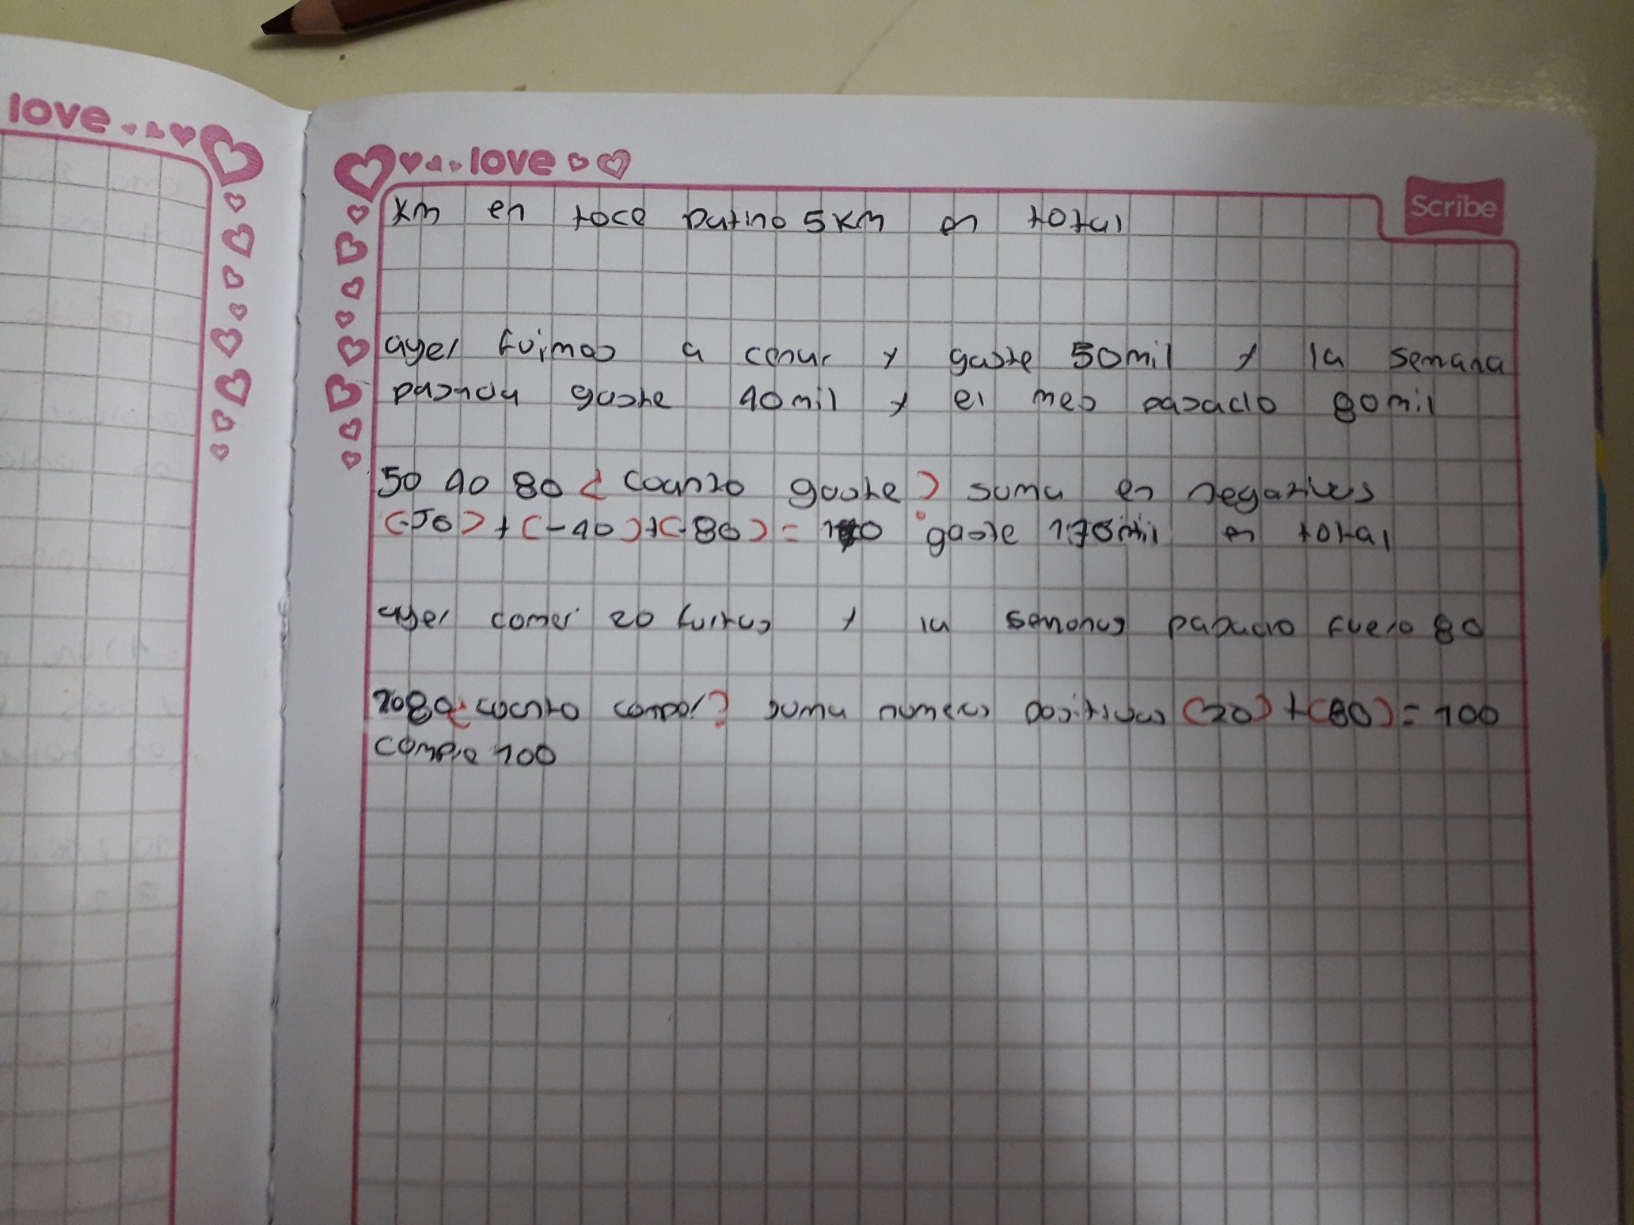 love
love
Scribe
Km en toce patino 5 Km en total
ayer fuimos a cenar y gaste 50mil y la semana
pasada gaste 40mil y el mes pasado 80mil
50 40 80 ¿ cuanto gaste? suma en negativos
(-50) + (-40)+(-80) = 170 gaste 170mil en total
ayer comer 20 frutas y la semana pasado fuero 80
20 80 ¿ cuanto compor? suma numeros positivos (20) + (80) = 100
compre 100